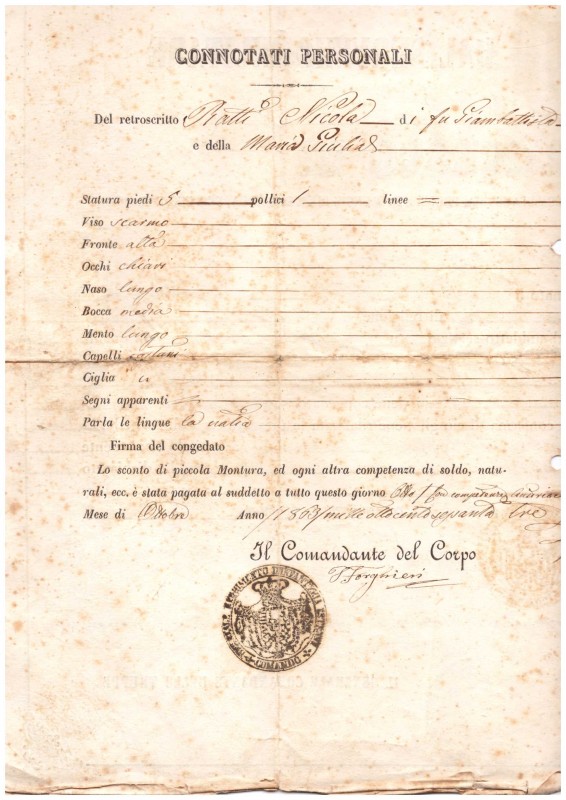 CONNOTATI PERSONALI
Del retroscritto Ratti Nicola di fu Giambattista
e della Maria Giulia
Statura piedi 5 pollici 1 linee =
Viso scarmo
Fronte alta
Occhi chiari
Naso lungo
Bocca media
Mento lungo
Capelli castani
Ciglia
Segni apparenti
Parla le lingue la natia
Firma del congedato
Lo sconto di piccola Montura, ed ogni altra competenza di soldo, natu-
rali, ecc. è stata pagata al suddetto a tutto questo giorno Otto
Mese di Ottobre Anno 1863 mille ottocento sessanta tre
Il Comandante del Corpo
Forghieri
COMANDO